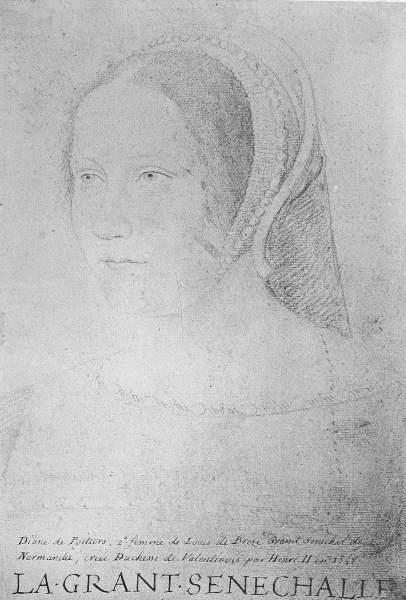 Diane de Poitiers, 2e femme de Louis de Brezé Grand Senechal de
Normandie, creée Duchesse de Valentinois par Henri II en 1548
LA·GRANT·SENECHALLE